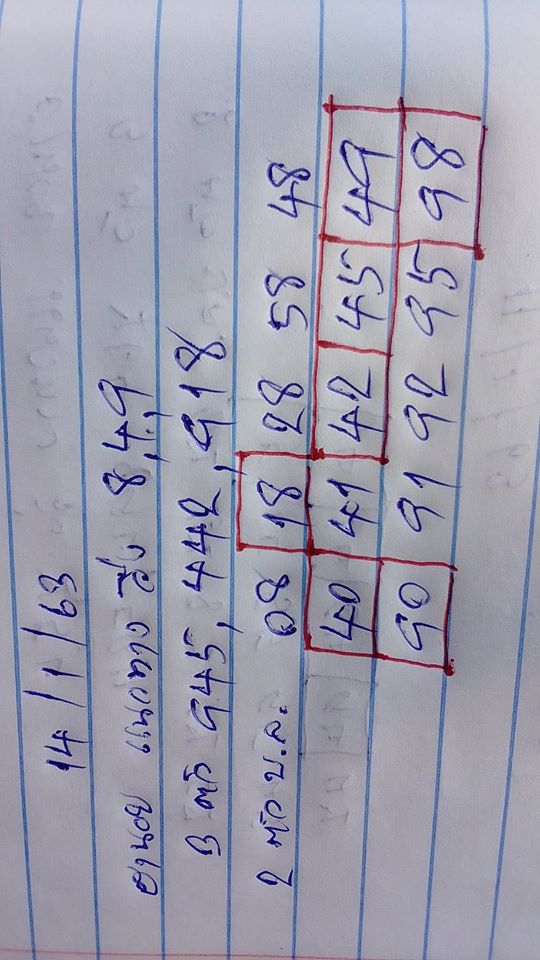 14/1/63
ฮานอย แนวทาง วิ่ง 8,4,9
3 ตัว 945, 442, 918
2 ตัว บ.ล. 08 18 28 58 48
40 41 42 45 49
90 91 92 95 98